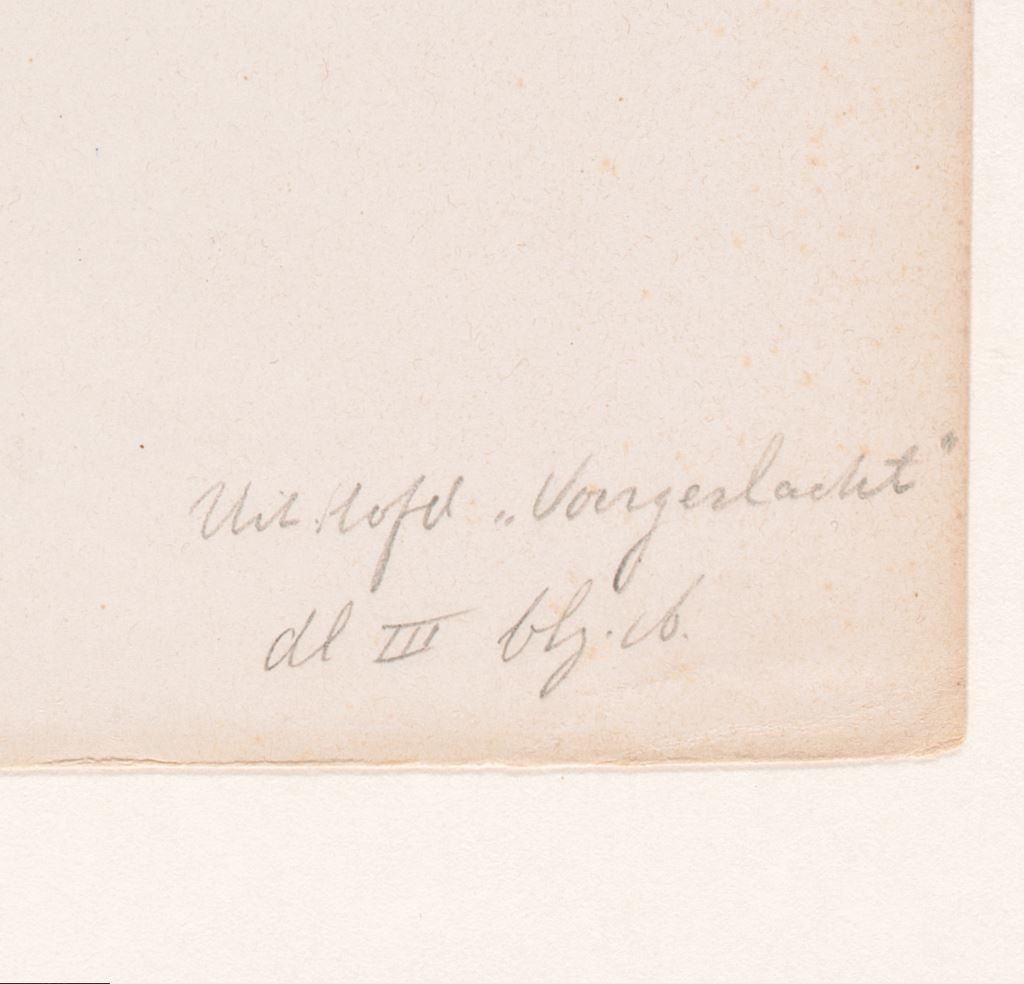 Uit Hofd „Voorgeslacht"
dl III blz. 16.